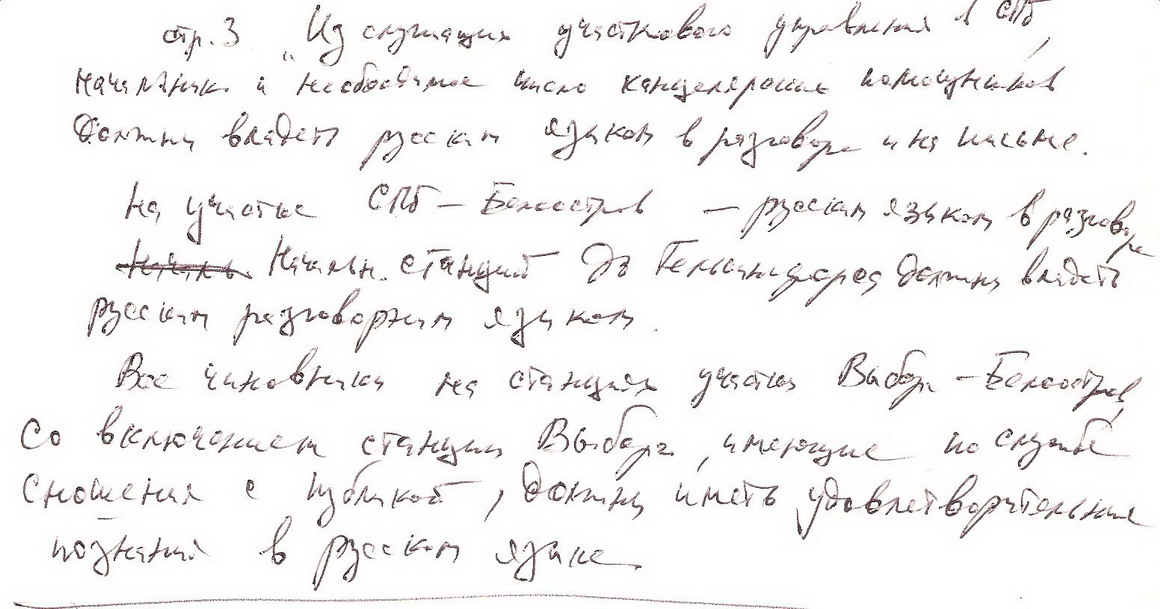 стр. 3 „Из служащих участкового управления в СПб,
начальник и необходимое число канцелярских помощников
должны владеть русским языком в разговоре и на письме.
На участке СПб – Белоостров – русским языком в разговоре
Началь. Начальн. станций до Гельсингфорса должны владеть
русским разговорным языком.
Все чиновники на станциях участка Выборг – Белоостров,
со включением станции Выборг, имеющие по службе
сношения с публикой, должны иметь удовлетворительные
познания в русском языке.